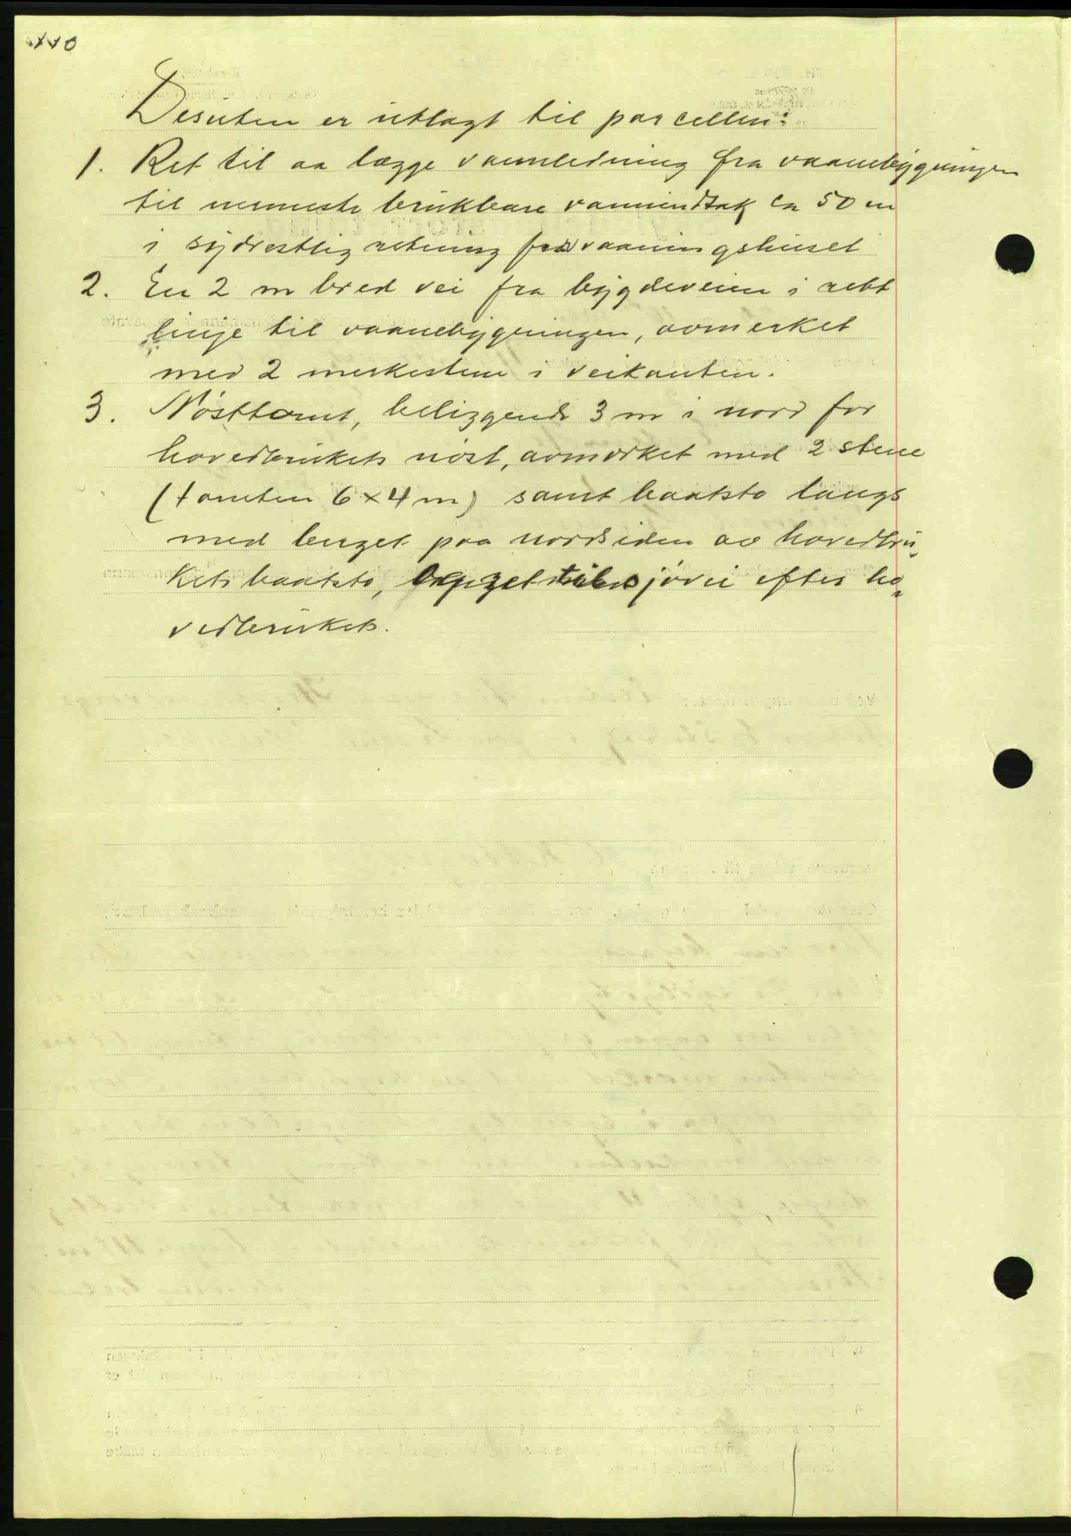 Desuten er utlagt til parcellen:
1. Ret til aa lægge vannledning fra vaanebygningen
til nærmeste brukbare vanninntak ca 50 m
i sydvestlig retning fra vaaningshuset
2. En 2 m bred vei fra bygdeveien i rett
linje til vaanebygningen, avmerket
med 2 merkestene i veikanten.
3. Nøsttomt, beliggende 3 m i nord for
hovedbrukets nøst, avmerket med 2 stene
(tomten 6 x 4 m) samt baatstø langs
med berget paa nordsiden av hovedbru-
kets baatstø, til sjøvei efter ho-
vedbrukets.